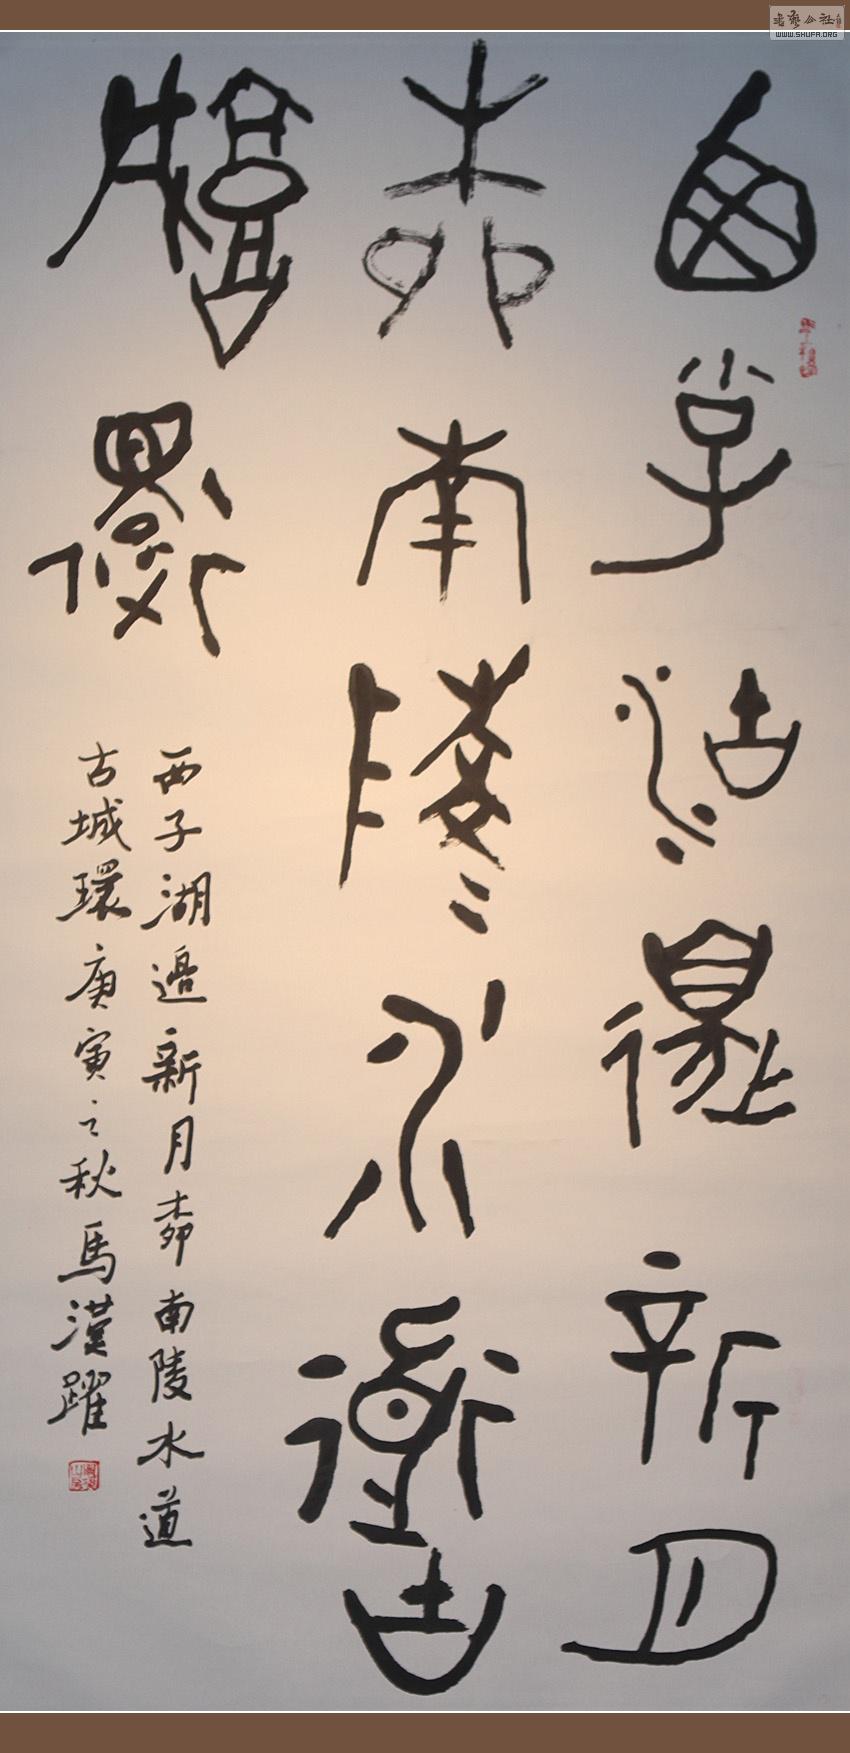 西子湖邊新月
𦮃南陵水道古
城環
西子湖邊新月𦮃南陵水道
古城環庚寅之秋馬漢躍
書藝公社
WWW.SHUFA.ORG